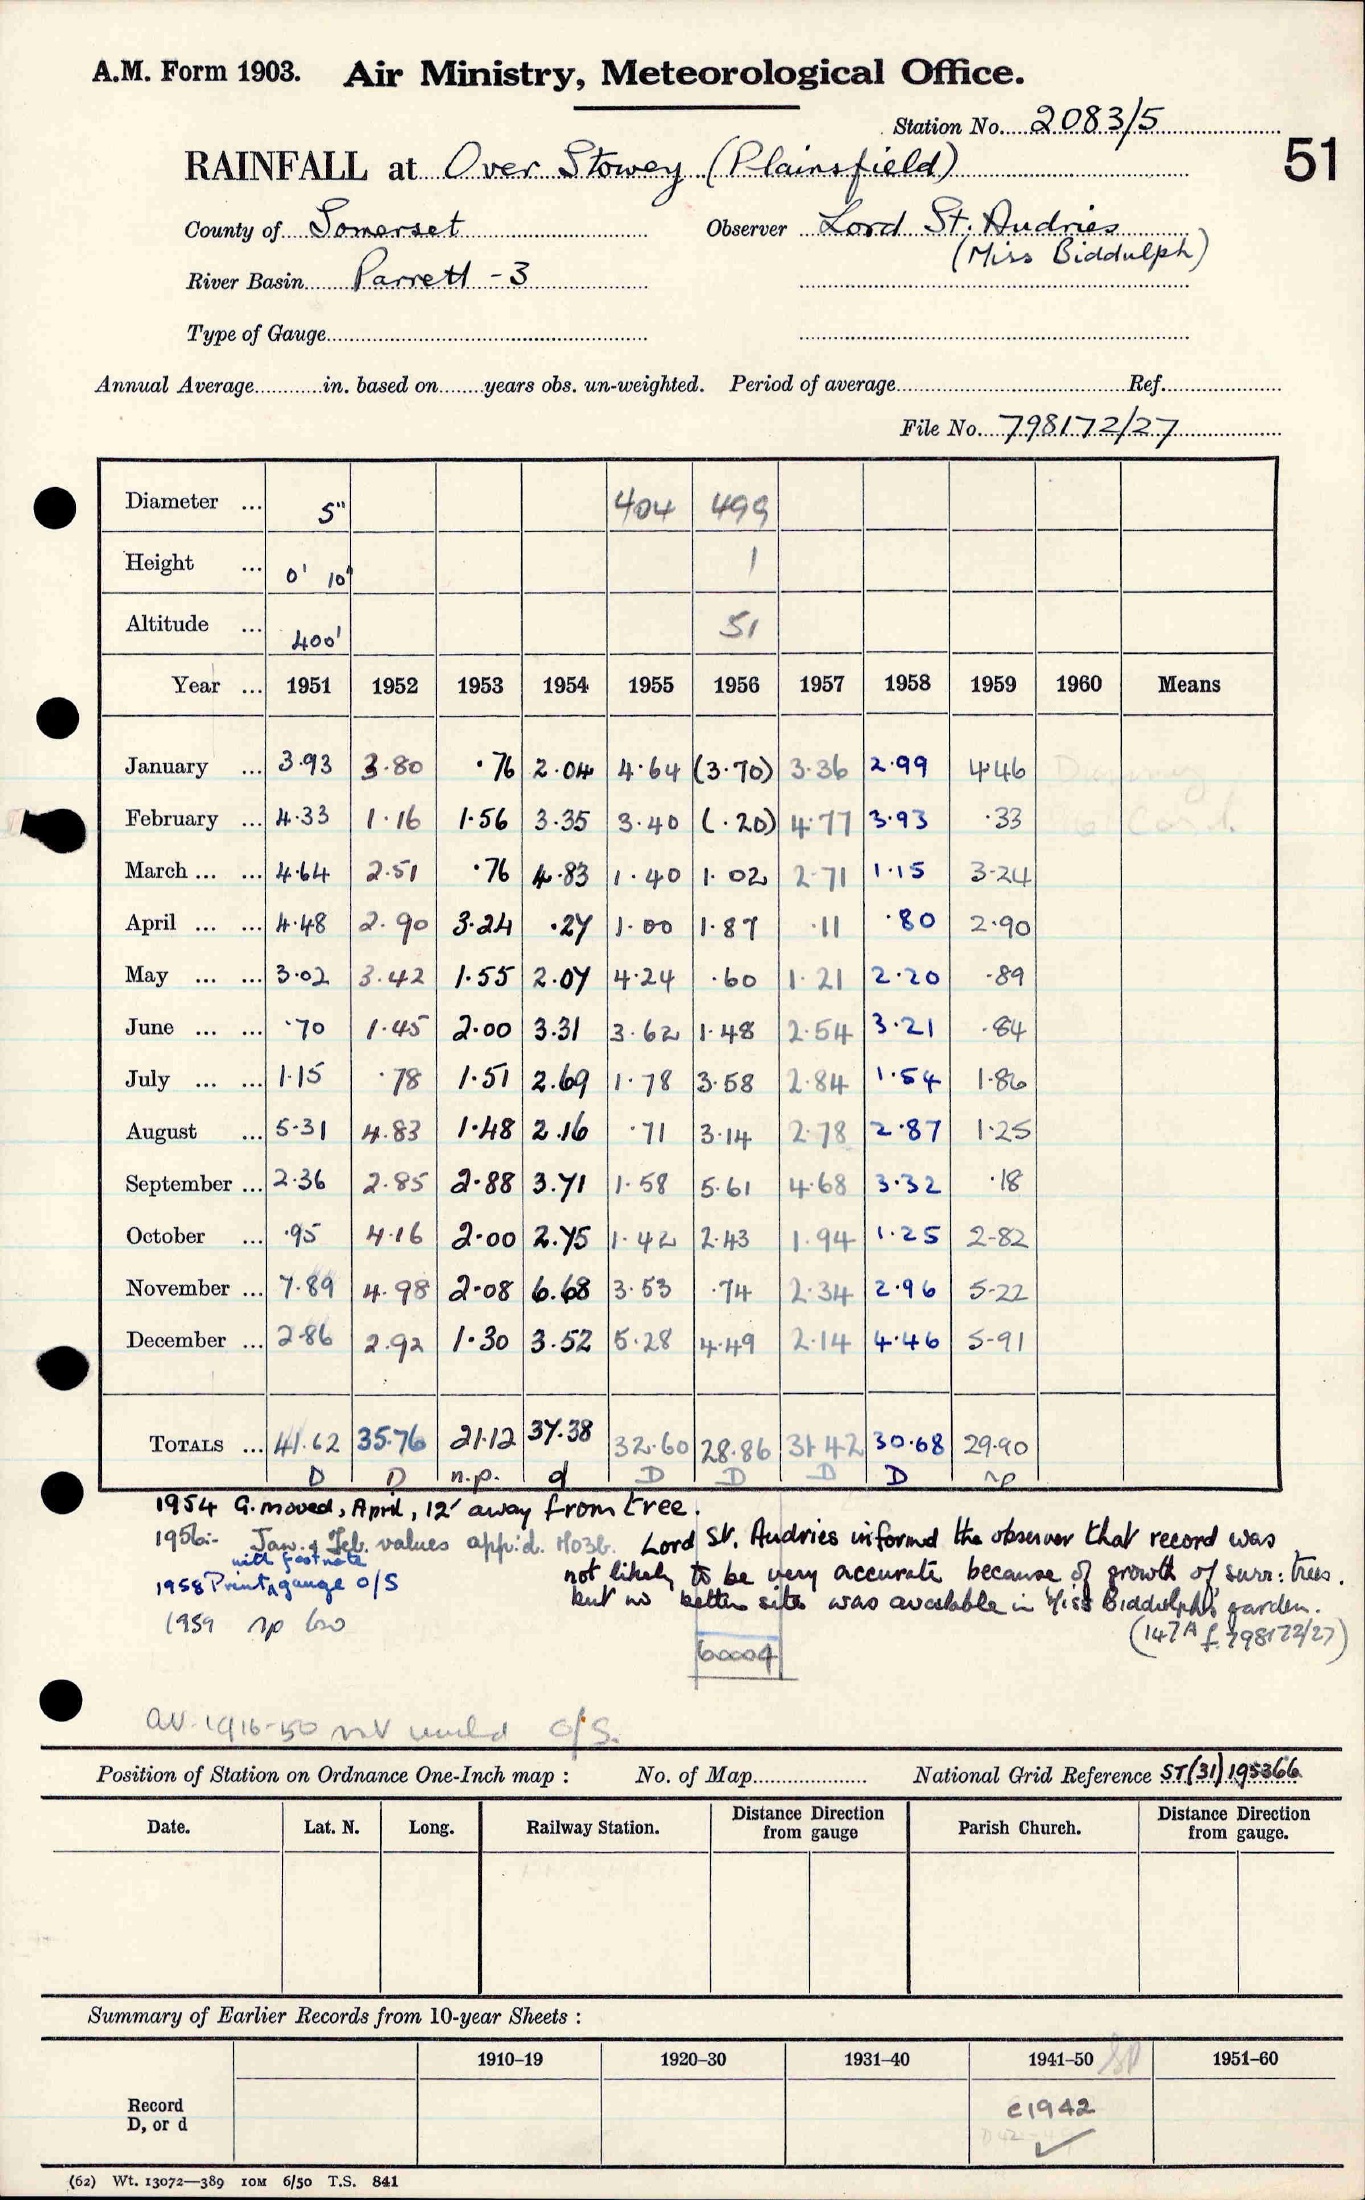 A.M. Form 1903. Air Ministry, Meteorological Office.
Station No. 2083/5
51
RAINFALL at Over Stowey (Plainsfield)
County of Somerset Observer Lord St. Audries
(Miss Biddulph)
River Basin Parrett -3
Type of Gauge
Annual Average in. based on years obs. un-weighted. Period of average Ref.
File No. 798172/27
Diameter ... 5" 404 499
Height ... 0' 10" 1
Altitude ... 400' 51
Year ... 1951 1952 1953 1954 1955 1956 1957 1958 1959 1960 Means
January ... 3.93 3.80 .76 2.04 4.64 (3.70) 3.36 2.99 4.46 Dummy
February ... 4.33 1.16 1.56 3.35 3.40 (.20) 4.77 3.93 .33 Card.
March ... ... 4.64 2.51 .76 4.83 1.40 1.02 2.71 1.15 3.24
April ... ... 4.48 2.90 3.24 .27 1.00 1.87 .11 .80 2.90
May ... ... 3.02 3.42 1.55 2.07 4.24 .60 1.21 2.20 .89
June ... ... .70 1.45 2.00 3.31 3.62 1.48 2.54 3.21 .84
July ... ... 1.15 .78 1.51 2.69 1.78 3.58 2.84 1.54 1.86
August ... 5.31 4.83 1.48 2.16 .71 3.14 2.78 2.87 1.25
September ... 2.36 2.85 2.88 3.71 1.58 5.61 4.68 3.32 .18
October ... .95 4.16 2.00 2.75 1.42 2.43 1.94 1.25 2.82
November ... 7.89 4.98 2.08 6.68 3.53 .74 2.34 2.96 5.22
December ... 2.86 2.92 1.30 3.52 5.28 4.49 2.14 4.46 5.91
TOTALS ... 41.62 35.76 21.12 37.38 32.60 28.86 31.42 30.68 29.90
D D n.p. d D D D D np
1954 G. moved, April, 12' away from tree.
1956:- Jan. & Feb. values app'd. M03b. Lord St. Audries informed the observer that record was
with footnote not likely to be very accurate because of growth of surr: trees.
1958 Print, gauge O/S but no better site was available in Miss Biddulph's garden.
1959 np (147A f. 798172/27)
60004
av. 1916-50 O/S.
Position of Station on Ordnance One-Inch map : No. of Map National Grid Reference ST(31)195366
Date. Lat. N. Long. Railway Station. Distance Direction from gauge Parish Church. Distance Direction from gauge.
Summary of Earlier Records from 10-year Sheets :
1910-19 1920-30 1931-40 1941-50 1951-60
Record D, or d c1942
(62) Wt. 13072—389 10M 6/50 T.S. 841